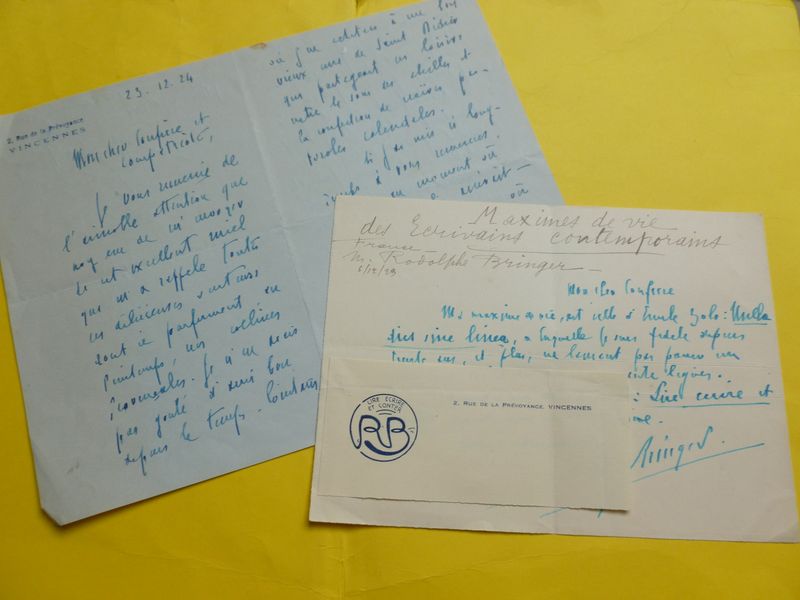 23.12.24
2, Rue de la Prévoyance
VINCENNES
Mon cher Confrère et
compatriote,
Je vous remercie de
l'aimable attention que
vous avez eue de m'envoyer
cet excellent miel
qui m'a rappelé toutes
ces délicieuses senteurs
dont se parfument au
Printemps, nos collines
Provençales. Je n'en avais
pas goûté d'aussi bon
depuis le temps lointain
vieux ami de Saint
qui partageait ses loisirs
entre le soin de ses abeilles et
la confection de naïves pas-
torales calendales.
Si j'ai mis si long-
temps à vous remercier,
au moment où
Maximes de vie
des Ecrivains contemporains
France
M. Rodolphe Bringer —
Mon cher Confrère
Ma maxime de vie, est celle d'Emile Zola : Nulla
dies sine linea, à laquelle je suis fidèle depuis
trente ans, et plus, ne laissant pas passer un
lignes.
: Lire écrire et
LIRE ECRIRE
ET CONTER
RB
2, RUE DE LA PRÉVOYANCE, VINCENNES
Bringer